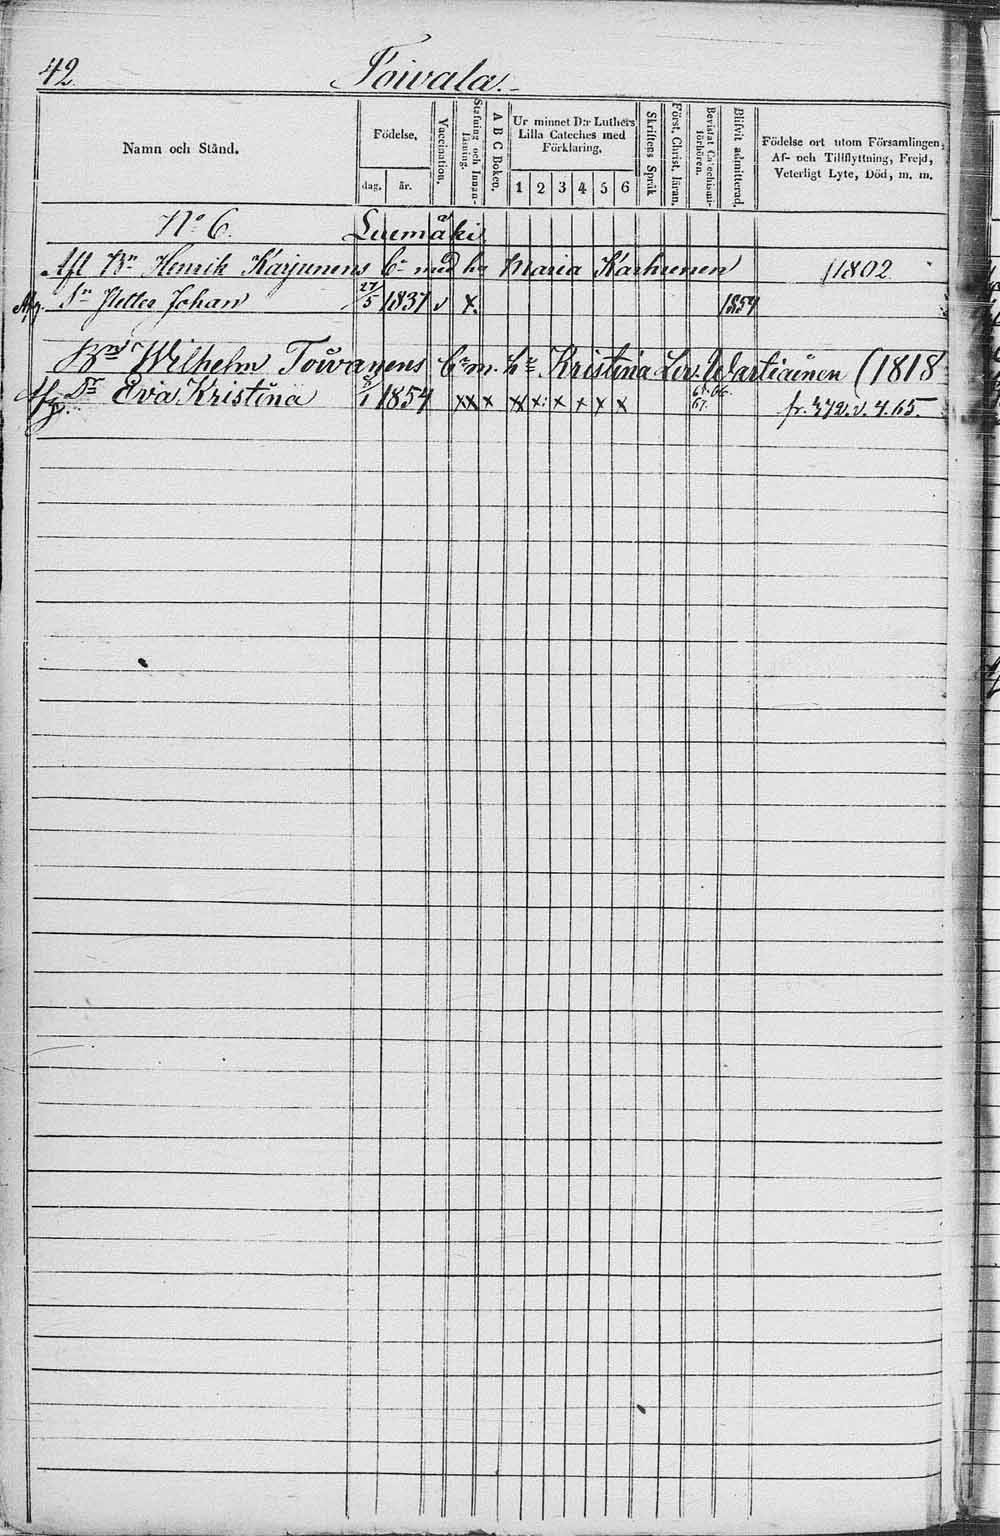 42.
Toivala.
Namn och Stånd.
Födelse.
dag. år.
Vaccination.
Stafning och Innanläsning.
A B C Boken.
Ur minnet D:r Luthers Lilla Cateches med Förklaring.
1 2 3 4 5 6
Skriftens Språk
Först. Christ. läran.
Bevistat Catechismiförhören.
Blifvit admitterad.
Födelse ort utom Församlingen,
Af- och Tillflyttning, Frejd,
Veterligt Lyte, Död, m. m.
No 6. Luemäki
Aft Bn Henrik Karjunens Cr med hu Maria Karhunen (1802
Sn Petter Johan 27/5 1837 v x. 1854
Bn Wilhelm Toiwanens Cr m. h. Kristina Wartiainen (1818
Dr Eva Kristina 1854 x x x x x x: x x x x 67. fr. 372. v. 4. 65.